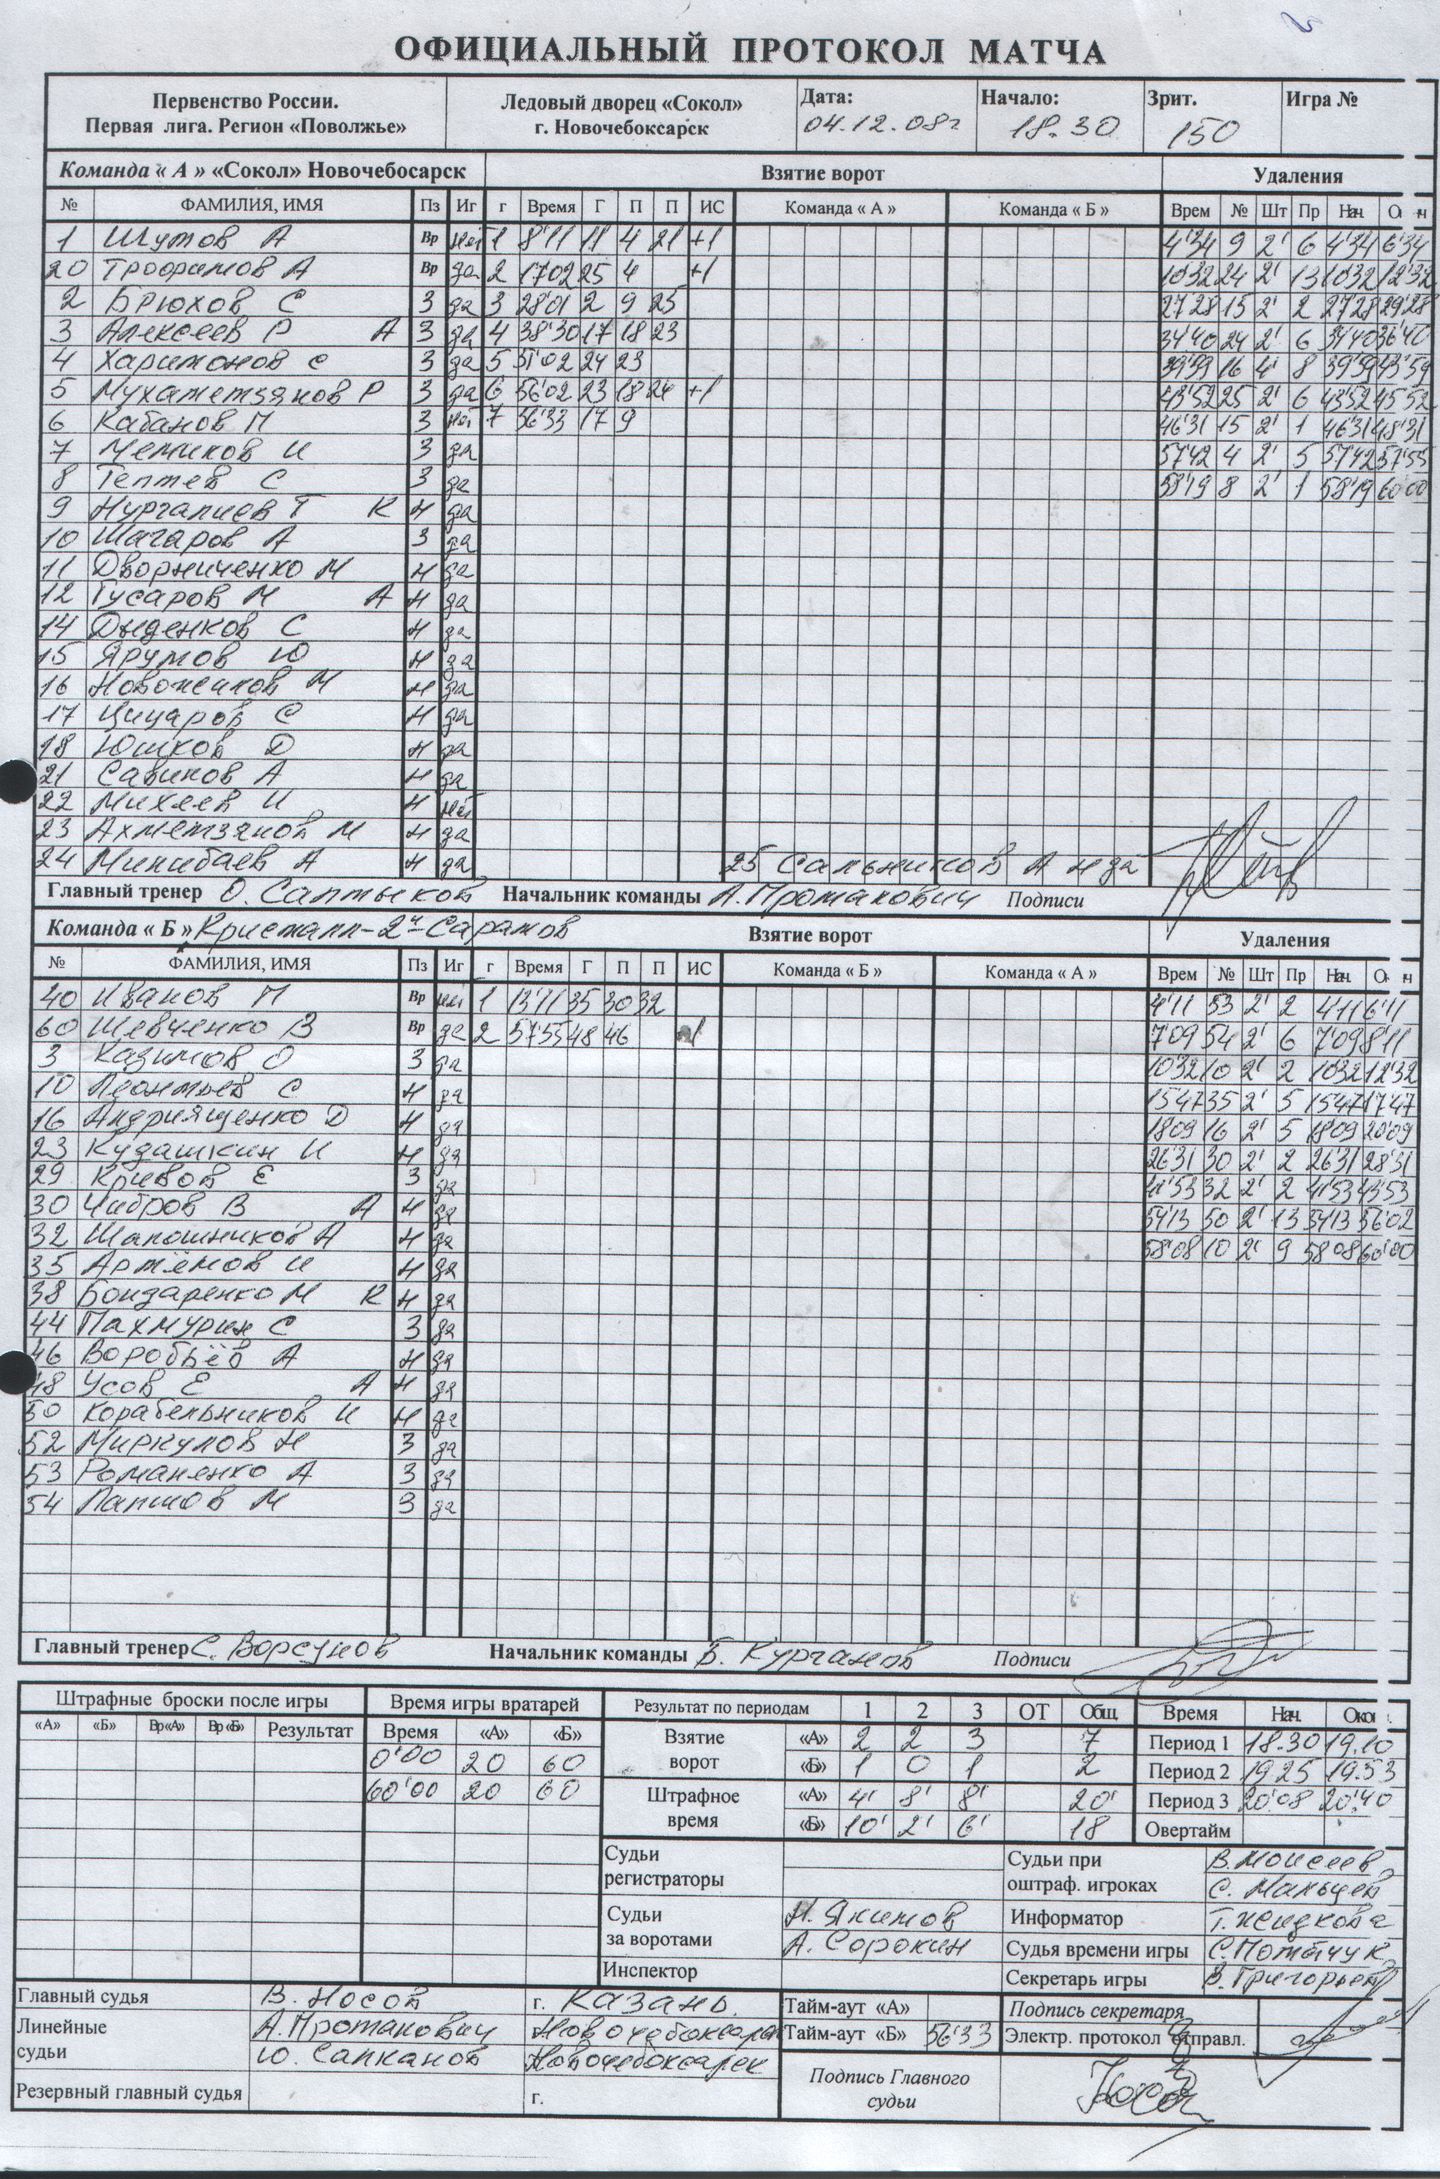 ОФИЦИАЛЬНЫЙ ПРОТОКОЛ МАТЧА
Первенство России. Первая лига. Регион «Поволжье»
Ледовый дворец «Сокол» г. Новочебоксарск
Дата: 04.12.08г
Начало: 18.30
Зрит. 150
Игра №
Команда « А » «Сокол» Новочебосарск Взятие ворот Удаления
№ ФАМИЛИЯ, ИМЯ Пз Иг г Время Г П П ИС Команда « А » Команда « Б » Врем № Шт Пр Нач.
1 Шутов А Вр нет 1 8'11 11 4 21 +1 4'34 9 2' 6 4'34 6'34
20 Трофимов А Вр да 2 1702 25 4 +1 10'32 24 2' 13 10'32 12'32
2 Брюхов С З да 3 28'01 2 9 25 27'28 15 2' 2 27'28 29'28
3 Алексеев Р А З да 4 38'30 17 18 23 34'40 24 2' 6 34'40 36'40
4 Харитонов С З да 5 51'02 24 23 39'59 16 4' 8 39'59 43'59
5 Мухаметзянов Р З да 6 56'02 23 18 24 +1 43'52 25 2' 6 43'52 45'52
6 Кабанов П З нет 7 56'33 17 9 46'31 15 2' 1 46'31 48'31
7 И З да 57'42 4 2' 5 57'42 57'55
8 Тептев С З да 58'19 8 2' 1 58'19 60'00
9 Нургалиев Т К Н да
10 Шагаров А З да
11 Дворниченко М Н да
12 Гусаров М А Н да
14 Дыденков С Н да
15 Ярутов Ю Н да
16 Новожилов М Н да
17 Цицаров С Н да
18 Юшков Д Н да
21 Савинов А Н да
22 Михеев И Н нет
23 Ахметзянов М Н да
24 Минибаев А Н да 25 Сальников А Н да
Главный тренер О. Салтыков Начальник команды А. Протакович Подписи
Команда « Б » Кристалл-2"-Саратов Взятие ворот Удаления
№ ФАМИЛИЯ, ИМЯ Пз Иг г Время Г П П ИС Команда « Б » Команда « А » Врем № Шт Пр Нач.
40 Иванов П Вр нет 1 13'11 35 30 32 4'11 53 2' 2 4'11 6'11
60 Шевченко В Вр да 2 57'55 48 46 7'09 54 2' 6 7'09 8'11
3 Казимов О З да 10'32 10 2' 2 10'32 12'32
10 Леонтьев С Н да 15'47 35 2' 5 15'47 17'47
16 Андриященко Д Н да 18'09 16 2' 5 18'09 20'09
23 Кудашкин И Н да 26'31 30 2' 2 26'31 28'31
29 Кривов Е З да 41'53 32 2' 2 41'53 43'53
30 Чибров В А Н да 54'13 50 2' 13 54'13 56'02
32 Шапошников А Н да 58'08 10 2' 9 58'08 60'00
35 Артёмов И Н да
38 Бондаренко М К Н да
44 Пахмурин С З да
46 Воробьёв А Н да
48 Усов Е А Н да
50 Корабельников И Н да
52 Миркулов Н З да
53 Романенко А З да
54 Лапшов М З да
Главный тренер С. Ворсунов Начальник команды Б. Курганов Подписи
Штрафные броски после игры Время игры вратарей Результат по периодам 1 2 3 ОТ Общ. Время Нач. Окон.
«А» «Б» Вр«А» Вр«Б» Результат Время «А» «Б»
0'00 20 60
60'00 20 60
Взятие ворот «А» 2 2 3 7 Период 1 18.30 19.10
«Б» 1 0 1 2 Период 2 19.25 19.53
Штрафное время «А» 4' 8' 8' 20' Период 3 20.08 20.40
«Б» 10' 2' 6' 18 Овертайм
Судьи регистраторы
Судьи при оштраф. игроках В. Моисеев
С. Мальцев
Судьи за воротами Н. Якимов Информатор Т. Жидкова
А. Сорокин Судья времени игры С. Потачук
Инспектор Секретарь игры В. Григорьев
Главный судья В. Носов г. Казань. Тайм-аут «А» Подпись секретаря
Линейные судьи А. Протакович Новочебоксарск Тайм-аут «Б» 56'33 Электр. протокол отправл.
Ю. Сапканов Новочебоксарск
Резервный главный судья г.
Подпись Главного судьи